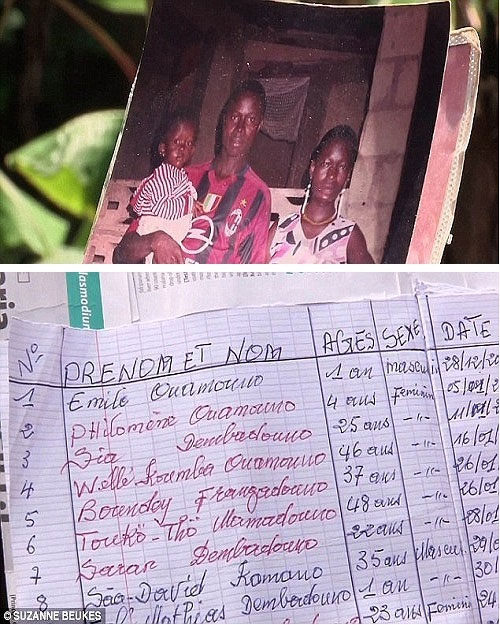 lasmodium
N° PRENOM ET NOM AGES SEXE DATE
1 Emile Ouamouno 1 an masculin 28/12/20
2 Philomène Ouamouno 4 ans Feminin 05/01/2
3 Sia Dembadouno 25 ans -"- 11/01/2
4 Wellé Koumba Ouamouno 46 ans -"- 16/01/
5 Borendoy Frangadouno 37 ans -"- 26/01
6 Toukö-Thö Mamadouno 48 ans -"- 26/01
7 Saran Dembadouno 22 ans -"- 28/01
8 Saa-David Romano 35 ans Masculin 29/0
Mathias Dembadouno 1 an -"- 30/
23 ans Feminin 24
© SUZANNE BEUKES